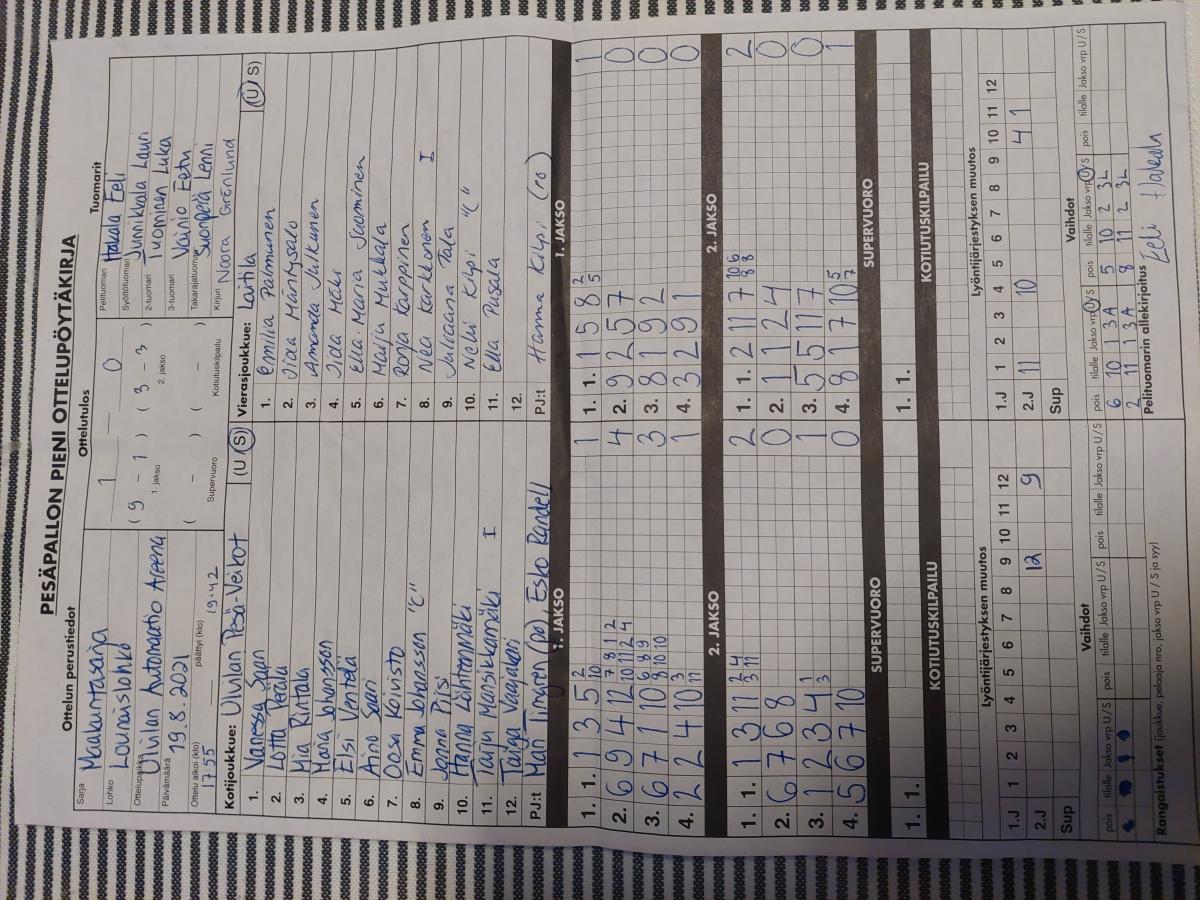 PESÄPALLON PIENI OTTELUPÖYTÄKIRJA
Ottelun perustiedot
Sarja Maakuntasarja
Lohko Lounaislohko
Ottelupaikka Ulvilan Automaatio Areena
Päivämäärä 19.8.2021
Ottelu alkoi (klo) 1755 päättyi (klo) 19.42
Ottelutulos
1 — 0
( 9 – 1 ) ( 3 – 3 )
1. jakso 2. jakso
( – ) ( – )
Supervuoro Kotiutuskilpailu
Tuomarit
Pelituomari Hakala Eeli
Syöttötuomari Junnikkala Lauri
2-tuomari Tuominen Luka
3-tuomari Vainio Eetu
Takarajatuomari Suonperä Lenni
Kirjuri Noora Grönlund
Kotijoukkue: Ulvilan Pesä-Veikot (U/S)
1. Vanessa Saari
2. Lotta Perälä
3. Mia Rintala
4. Maria Johansson
5. Essi Ventelä
6. Aino Saari
7. Oosa Koivisto
8. Emma Johansson "C"
9. Joana Piisi
10. Hanna Lähteenmäki
11. Taiju Mansikkamäki I
12. Taija Vaajakari
PJ:t Mari Tingren (po), Esko Randell
Vierasjoukkue: Laitila (U/S)
1. Emilia Palmunen
2. Iida Mäntysalo
3. Amanda Julkunen
4. Iida Mäki
5. Ella-Maria Suominen
6. Maiju Mukkala
7. Ronja Karppinen
8. Nea Karkkonen I
9. Juliaana Tala
10. Nelli Kilpi "C"
11. Ella Pusala
12.
PJ:t Hanna Kilpi (po)
1. JAKSO 1. JAKSO
1. 1. 1 3 5 2 10 1 1. 1. 1 5 8 2 5 1
2. 6 9 4 12 7 8 1 2 10 11 12 4 4 2. 9 2 5 7 0
3. 6 7 1 10 6 8 9 8 10 10 3 3. 8 1 9 2 0
4. 2 2 4 10 3 11 1 4. 3 2 9 1 0
2. JAKSO 2. JAKSO
1. 1. 1 3 11 2 4 3 11 2 1. 1. 2 11 7 10 6 8 8 2
2. 6 7 6 8 0 2. 1 1 2 4 0
3. 1 2 3 4 1 3 1 3. 5 5 11 7 0
4. 5 6 7 10 0 4. 8 1 7 10 5 7 1
SUPERVUORO SUPERVUORO
1. 1. 1. 1.
KOTIUTUSKILPAILU KOTIUTUSKILPAILU
Lyöntijärjestyksen muutos Lyöntijärjestyksen muutos
1.J 1 2 3 4 5 6 7 8 9 10 11 12 1.J 1 2 3 4 5 6 7 8 9 10 11 12
2.J 12 9 2.J 11 10 4 1
Sup Sup
Vaihdot Vaihdot
pois tilalle Jakso vrp U/S pois tilalle Jakso vrp U/S pois tilalle Jakso vrp U/S
pois tilalle Jakso vrp U/S pois tilalle Jakso vrp U/S pois tilalle Jakso vrp U/S
6 10 1 3A 5 10 2 3L
2 11 1 3A 8 11 2 3L
Rangaistukset (joukkue, pelaaja nro, jakso vrp U / S ja syy)
Pelituomarin allekirjoitus Eeli Hakala